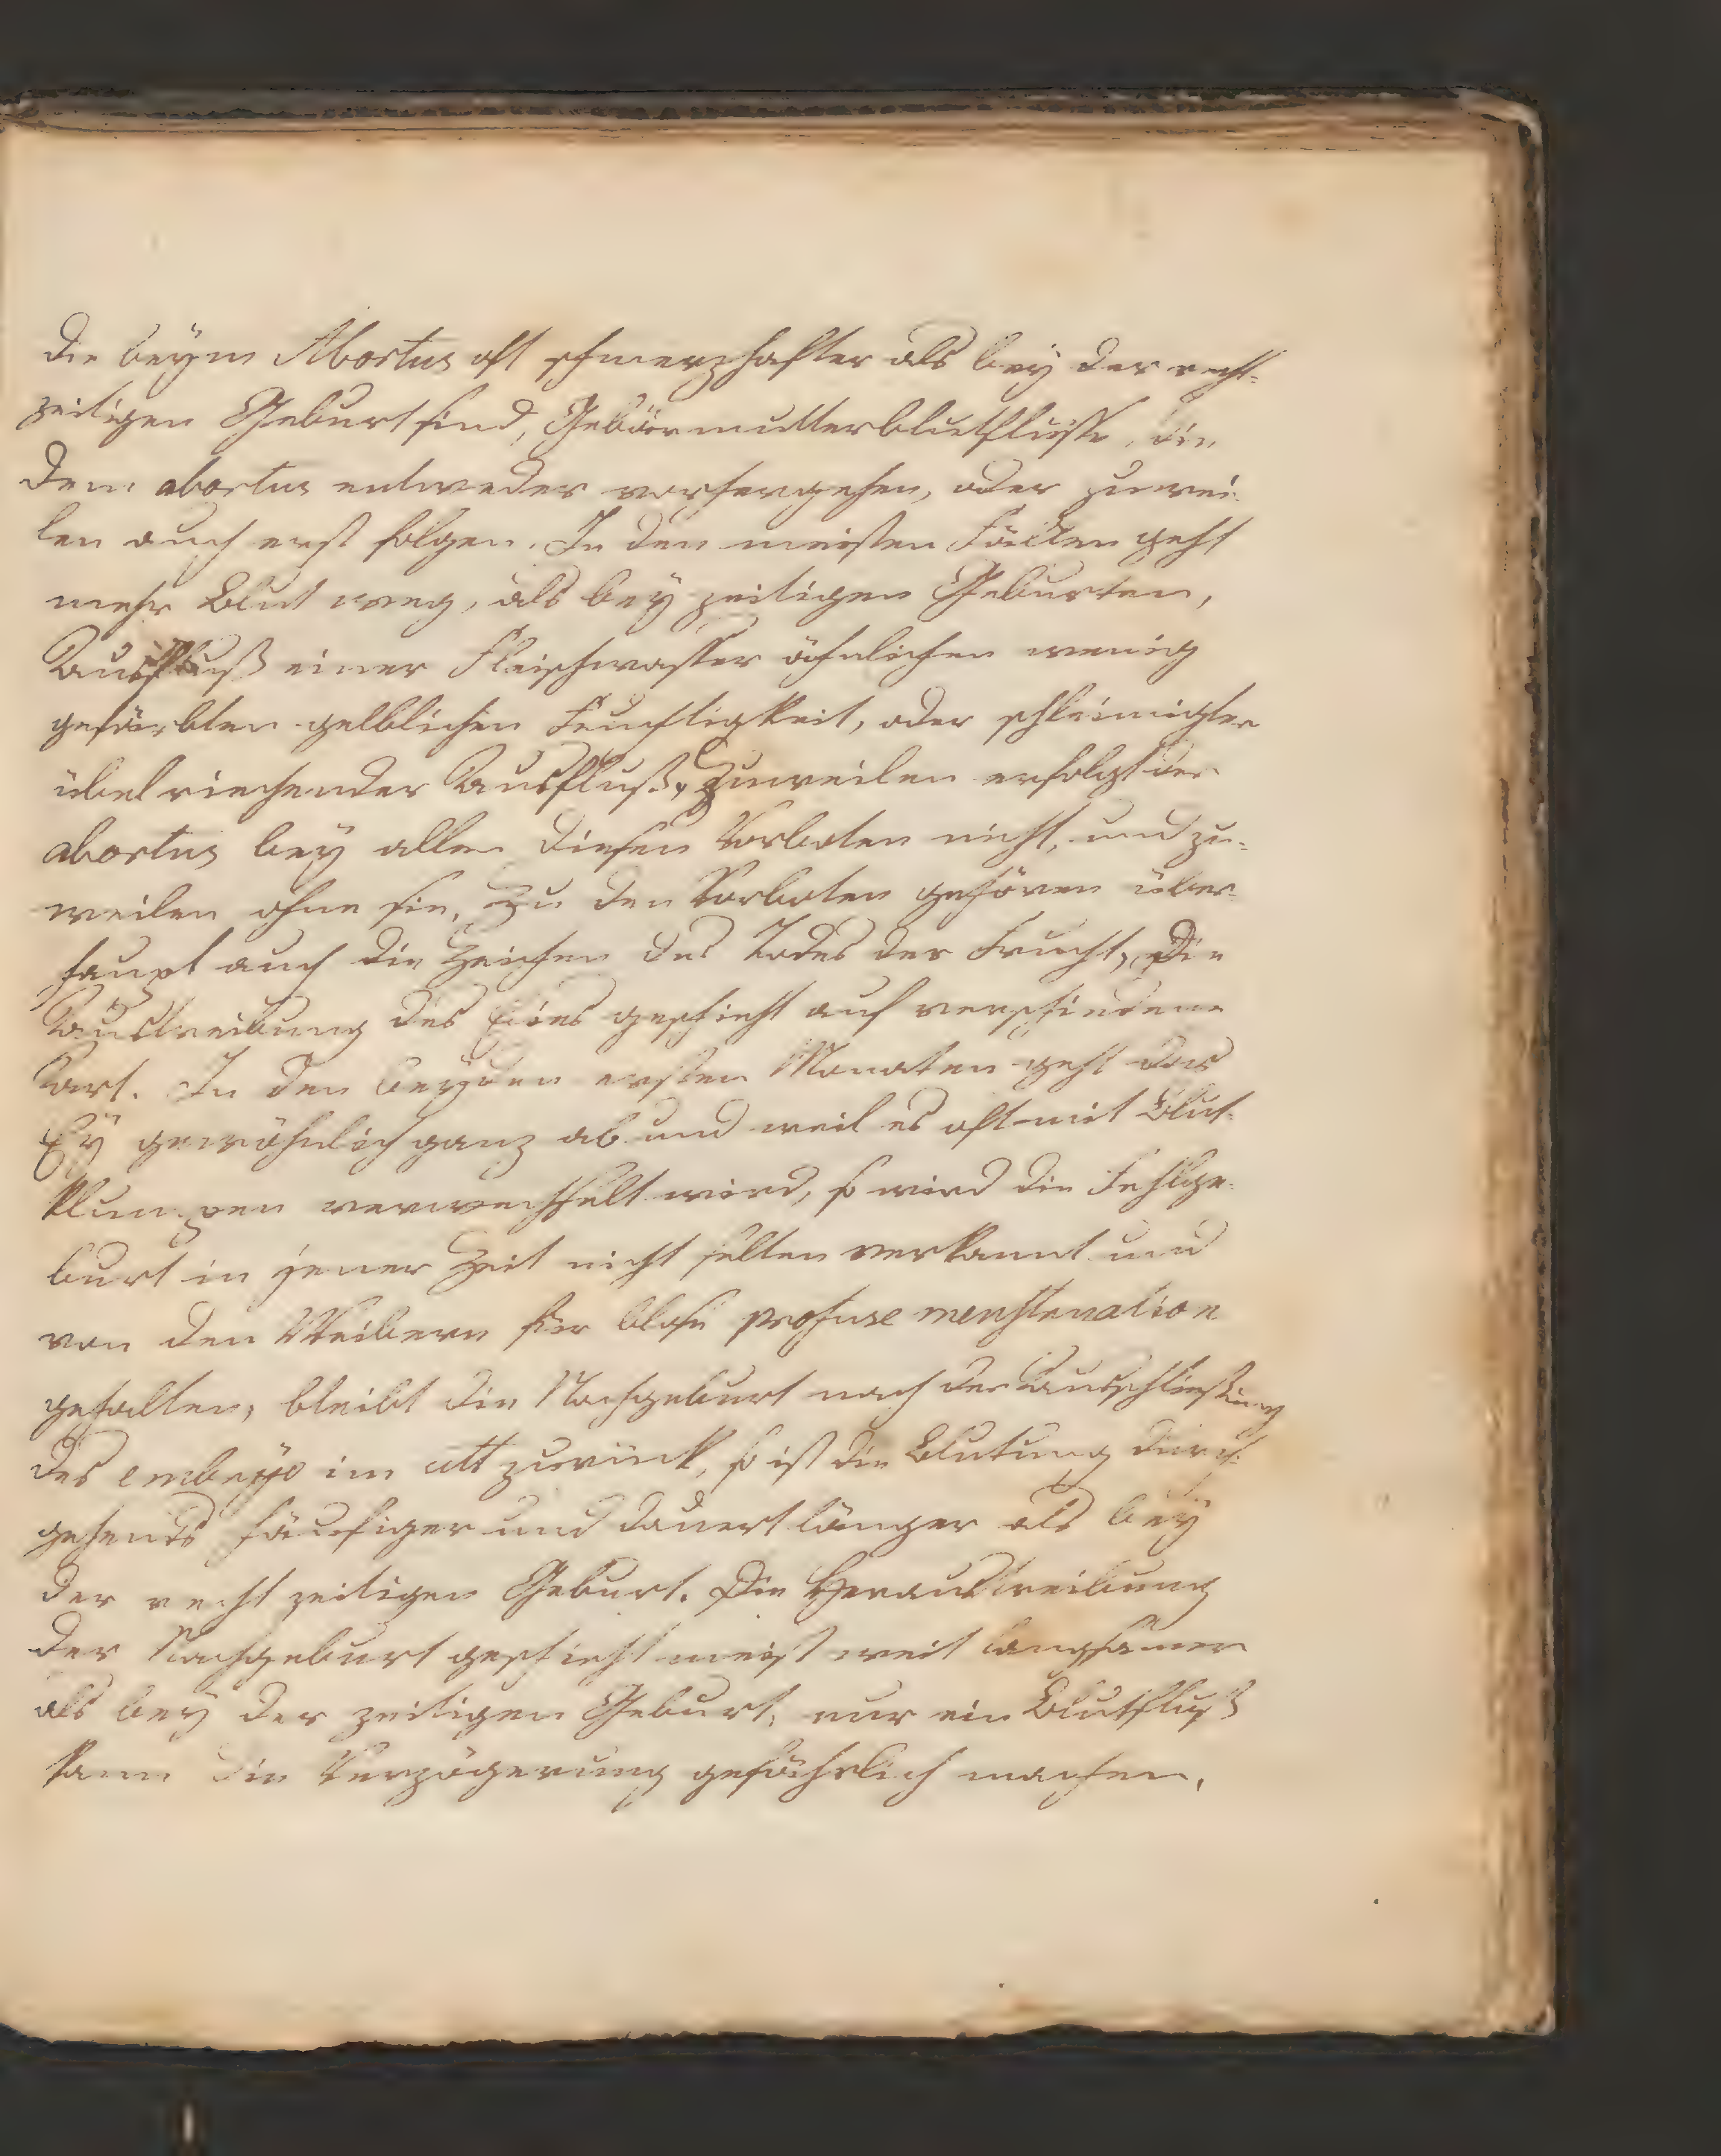 die beÿm Abortus oft schmerzhafter als beÿ der recht-
zeitigen Geburt sind, Gebärmutterblutflüsse, die
dem abortus entweder vorhergehen, oder zuwei-
len auch erst folgen. In den meisten Fällen geht
mehr Blut weg, als beÿ zeitigen Geburten,
Ausfluß einer Fleischwasser ähnlichen wenig
gefärbten gelblichen Feuchtigkeit, oder schleimigter
übel riechender Ausfluß, Zuweilen erfolgt der
abortus beÿ allen diesen Vorboten nicht, und zu-
weilen ohne sie, Zu den Vorboten gehören über-
haupt auch die Zeichen des Todes der Frucht, Die
Austreibung des Eies geschieht auf verschiedene
Art. In den beÿden ersten Monaten geht das
Eÿ gewöhnlich ganz ab und weil es oft mit Blut-
klumpen verwechselt wird, so wird die Fehlge-
burt in jener Zeit nicht selten verkannt und
von den Weibern für bloße profuse menstruation
gehalten, bleibt die Nachgeburt nach der Ausschließung
des embryo im utt zurück, so ist die Blutung durch-
gehends häufiger und dauert länger als beÿ
der recht zeitigen Geburt. Die Heraustreibung
der Nachgeburt geschieht meist weit langsamer
als beÿ der zeitigen Geburt, nur ein Blutfluß
kann die Verzögerung gefährlich machen,